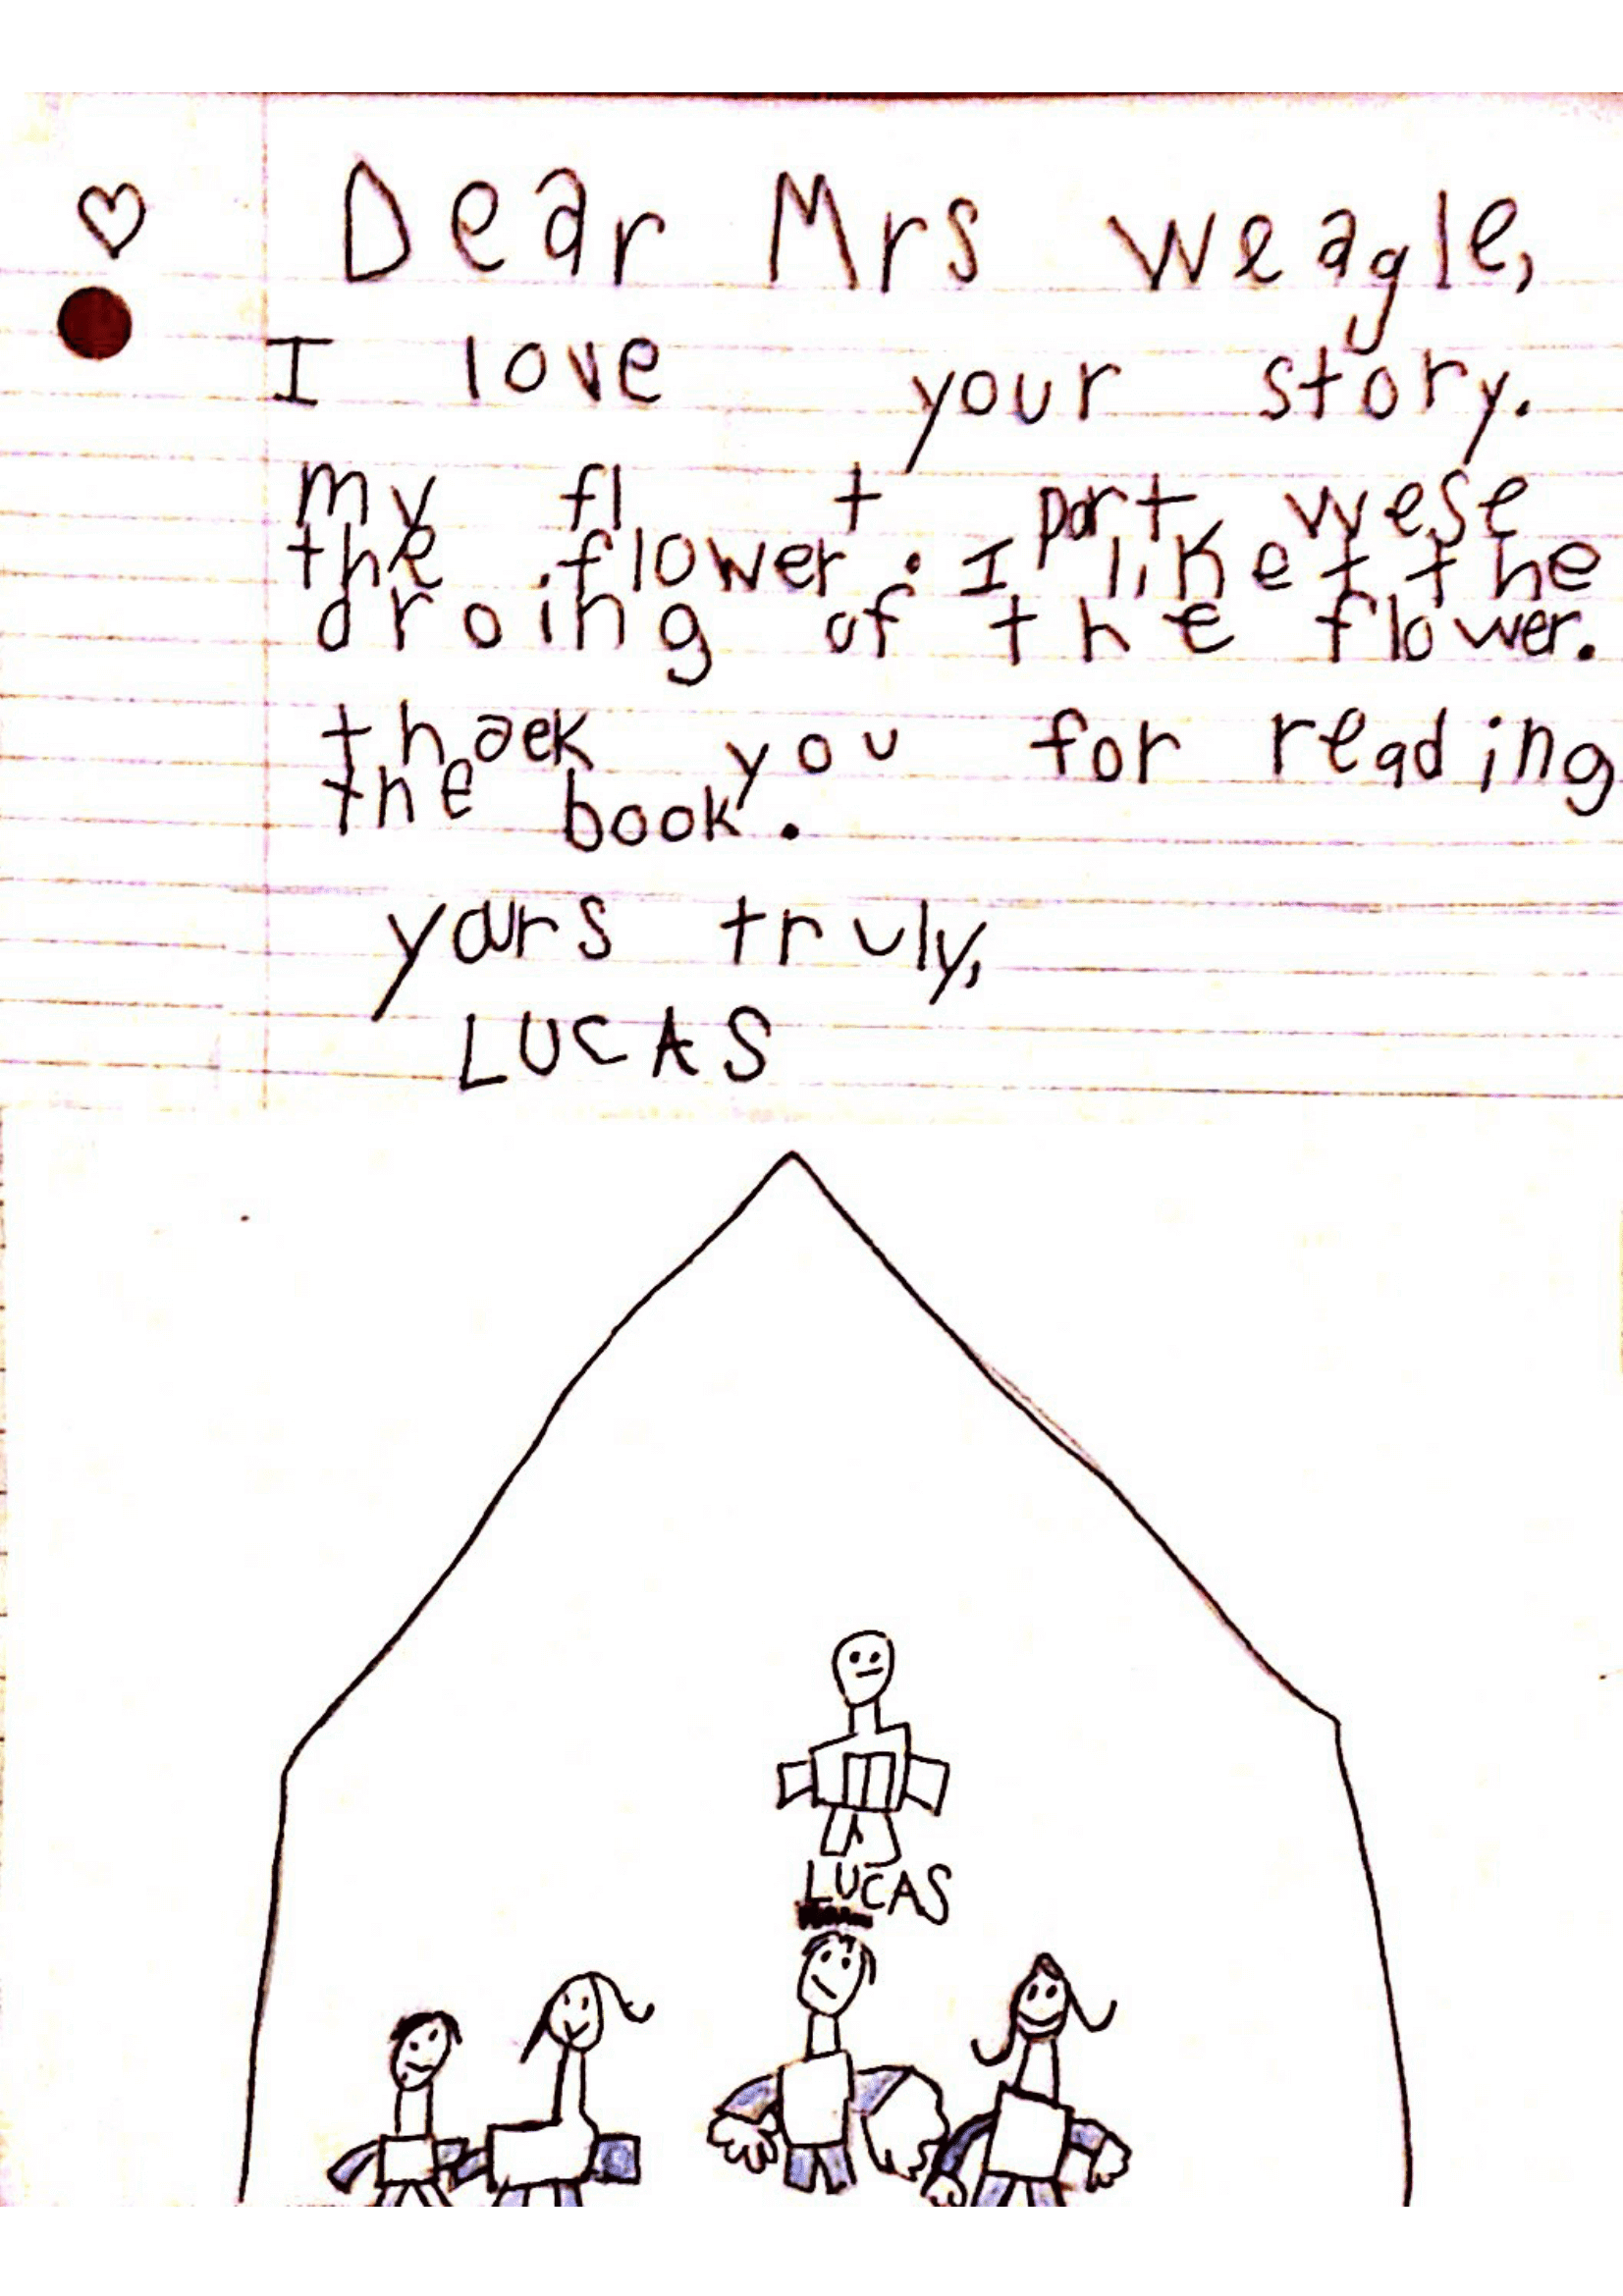 Dear Mrs weagle,
I love your story.
my fl t part wese
the flower. I liket the
droing of the flower.
thaek you for reading
the book.
yours truly,
LUCAS
LUCAS